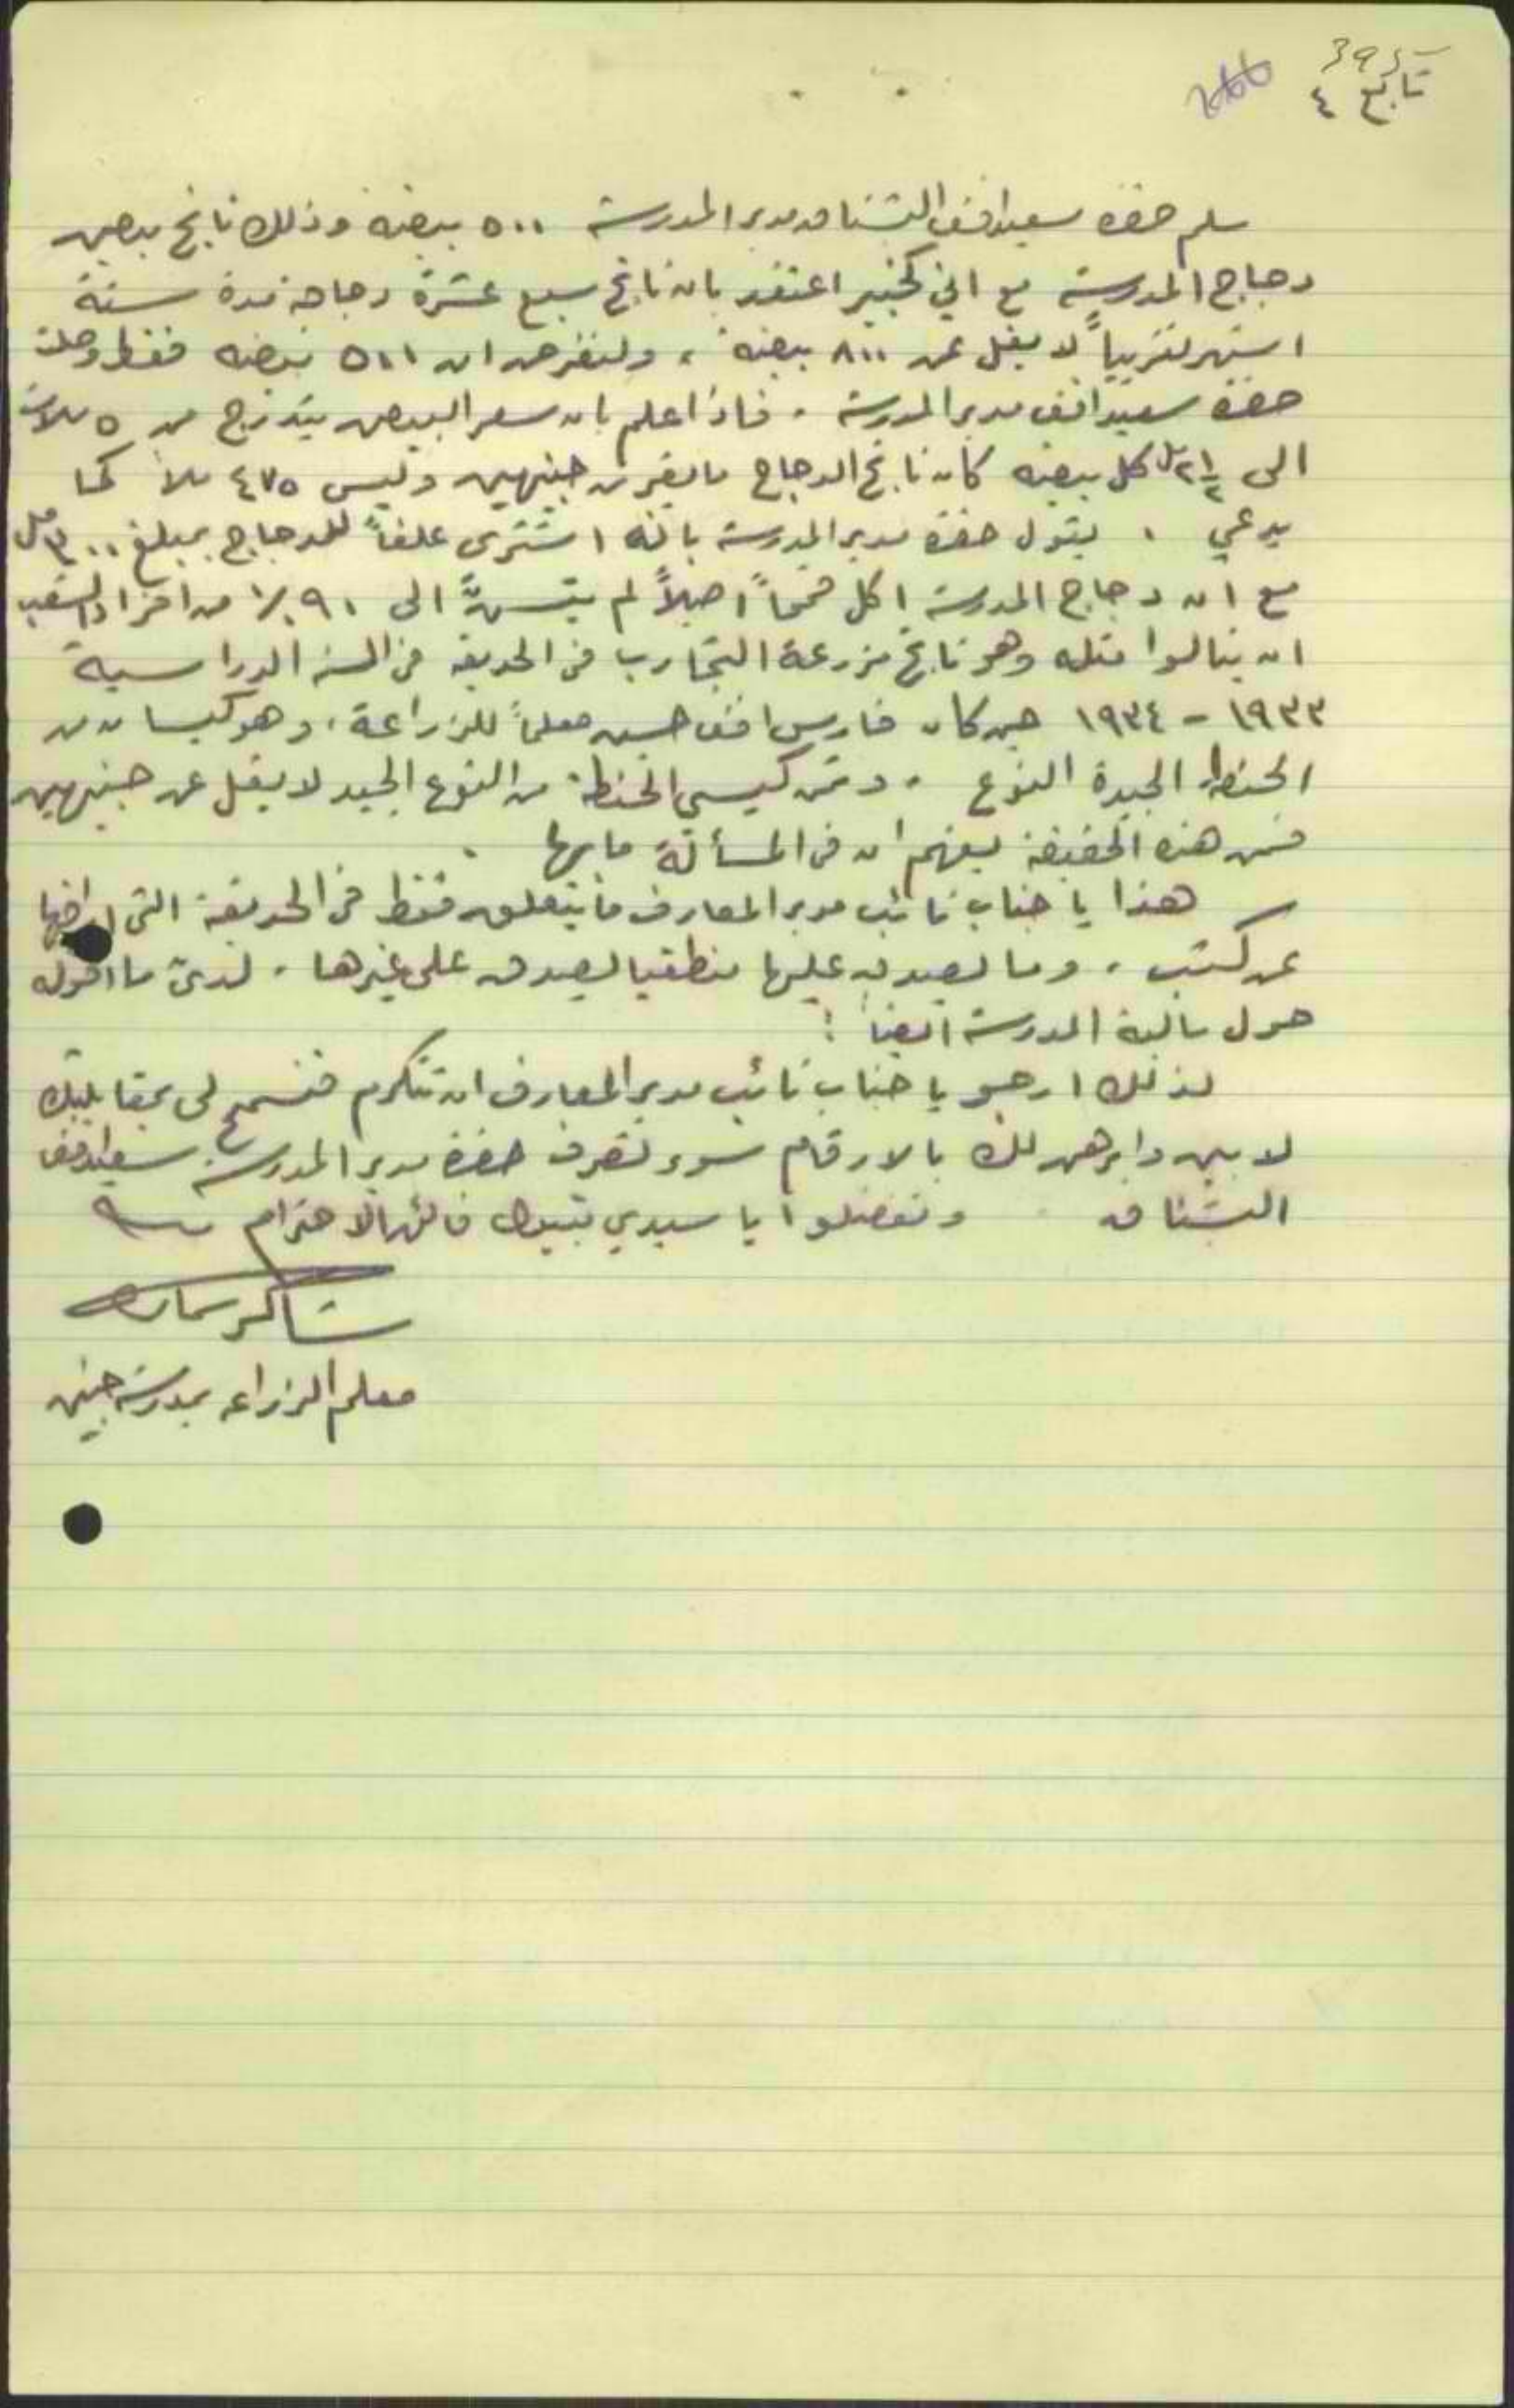 395
تابع ٤
سلم حضرة سعيد افندي الشناق مدير المدرسة ٥٠٠ بيضة وذلك ناتج بيض
دجاج المدرسة مع اني كخبير اعتقد بان ناتج سبع عشرة دجاجة مدة ستة
اشهر تقريباً لا يقل عن ٨٠٠ بيضة ، ولنفرض ان ٥٠٠ بيضه فقط وصلت
حضرة سعيد افندي مدير المدرسة . فاذا علم بان سعر البيض يتدرج من ٥ ملات
الى ٢½ مل كل بيضه كان ناتج الدجاج ما يقرب جنيهين وليس ٤٧٥ ملاً كما
يدعي . يقول حضرة مدير المدرسة بانه اشترى علفاً للدجاج بمبلغ مل
مع ان دجاج المدرسة اكل قمحاً اصيلاً لم يتسنَّ الى ٩٠ ٪ من افراد الشعب
ان ينالوا مثله وهو ناتج مزرعة التجارب في الحديقه في السنه الدراسية
١٩٣٣ - ١٩٣٤ حين كان فارس افندي حسين معلماً للزراعة ، وهو كيسان من
الحنطة الجيدة النوع . وثمن كيسي الحنطة من النوع الجيد لا يقل عن جنيهين
فمن هذه الحقيقة يفهم ان في المسألة ما بها .
هذا يا جناب نائب مدير المعارف ما يتعلق فقط في الحديقة التي
عن كثب . وما يصدق عليها منطقيا يصدق على غيرها . لدىّ ما اقوله
حول مالية المدرسة ايضاً !
لذلك ارجو يا جناب نائب مدير المعارف ان تتكرم فتسمح لي بمقابلتك
لابين وابرهن لك بالارقام سوء تصرف حضرة مدير المدرسة سعيد افندي
الشناق وتفضلوا يا سيدي بقبول فائق الاحترام
شاكر
معلم الزراعه بمدرسة جنين